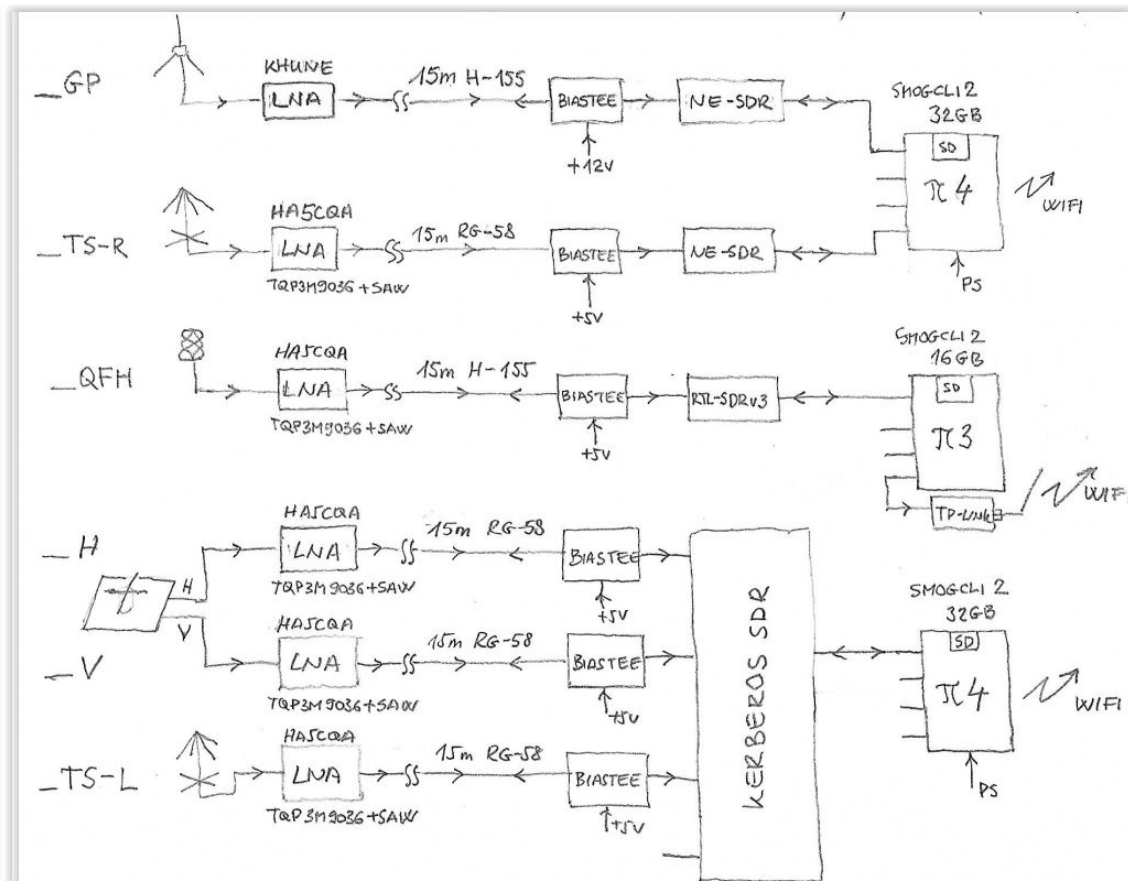 KHUNE
_GP
LNA
15m H-155
BIASTEE
+12V
NE-SDR
SMOGCLI2
32GB
SD
π4
WIFI
PS
_TS-R
HA5CQA
LNA
TQP3M9036+SAW
15m RG-58
BIASTEE
+5V
NE-SDR
_QFH
HA5CQA
LNA
TQP3M9036+SAW
15m H-155
BIASTEE
+5V
RTL-SDRV3
SMOGCLI2
16GB
SD
π3
TP-LINK
WIFI
_H
H
HA5CQA
LNA
TQP3M9036+SAW
15m RG-58
BIASTEE
+5V
_V
V
HA5CQA
LNA
TQP3M9036+SAW
15m RG-58
BIASTEE
+5V
_TS-L
HA5CQA
LNA
TQP3M9036+SAW
15m RG-58
BIASTEE
+5V
KERBEROS SDR
SMOGCLI2
32GB
SD
π4
WIFI
PS